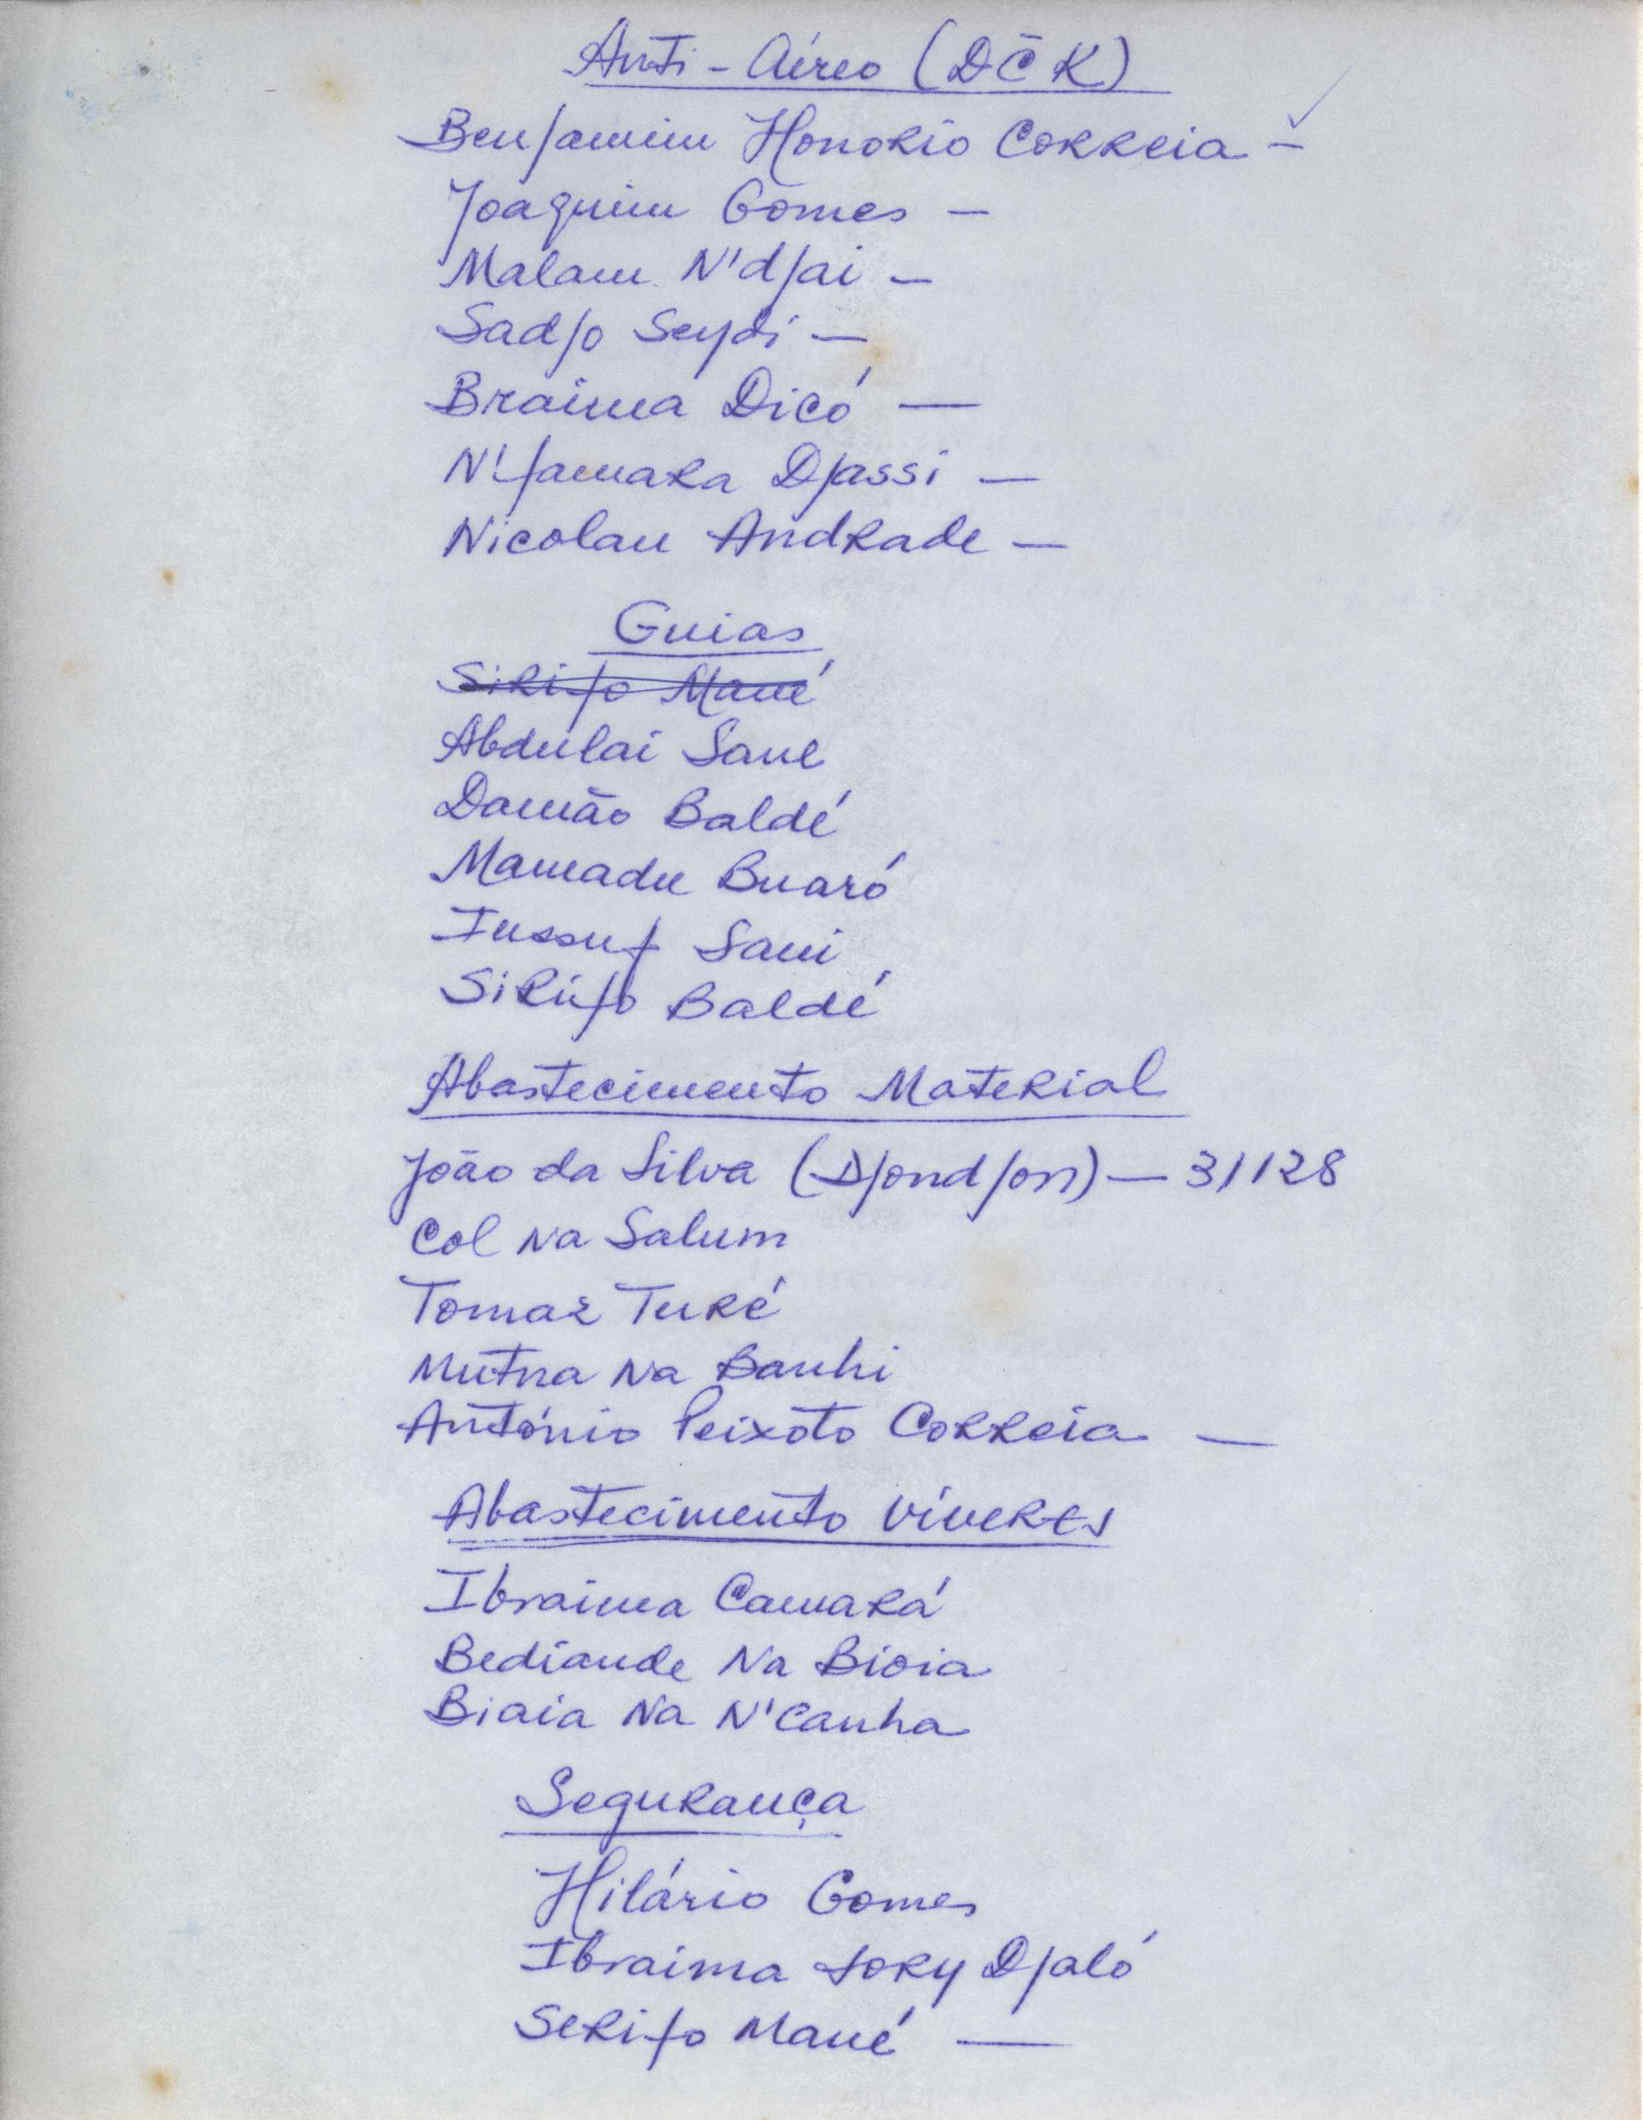 Anti-Aéreo (DČK)
Benjamim Honorio Correia -
Joaquim Gomes -
Malam N'djai -
Sadjo Seydi -
Braima Dicó -
N'famara Djassi -
Nicolau Andrade -
Guias
Sirifo Mané
Abdulai Sane
Damão Baldé
Mamadu Buaró
Iussuf Sani
Sirifo Baldé
Abastecimento Material
João da Silva (Djondjon) - 31128
Col Na Salum
Tomaz Turé
Mutna Na Banhi
António Peixoto Correia -
Abastecimento Víveres
Ibraima Camará
Bediande Na Bioia
Biaia Na N'Canha
Segurança
Hilário Gomes
Ibraima Sory Djaló
Serifo Mané -